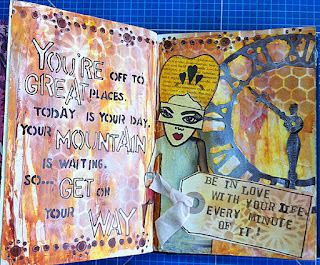 YOU'RE OFF TO
GREAT PLACES.
TODAY IS YOUR DAY.
YOUR MOUNTAIN
IS WAITING.
SO... GET ON
YOUR WAY
BE IN LOVE
WITH YOUR LIFE.
EVERY MINUTE
OF IT!